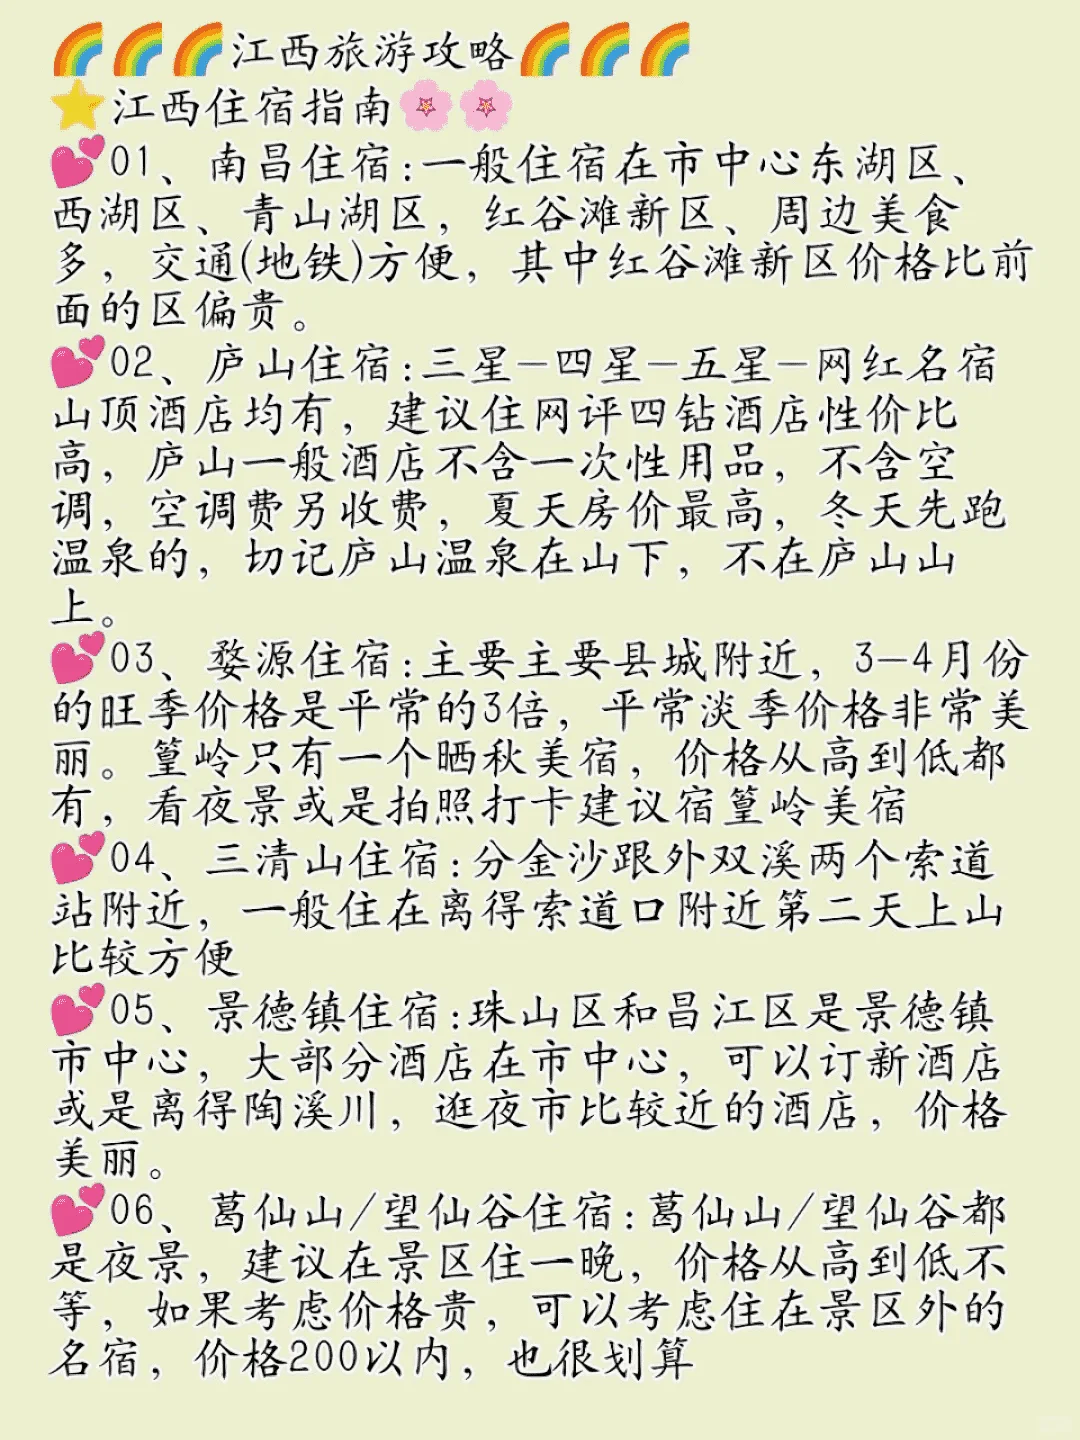 🌈🌈🌈江西旅游攻略🌈🌈🌈
⭐江西住宿指南🌸🌸
💕01、南昌住宿:一般住宿在市中心东湖区、
西湖区、青山湖区，红谷滩新区、周边美食
多，交通(地铁)方便，其中红谷滩新区价格比前
面的区偏贵。
💕02、庐山住宿:三星-四星-五星-网红名宿
山顶酒店均有，建议住网评四钻酒店性价比
高，庐山一般酒店不含一次性用品，不含空
调，空调费另收费，夏天房价最高，冬天先跑
温泉的，切记庐山温泉在山下，不在庐山山
上。
💕03、婺源住宿:主要主要县城附近，3-4月份
的旺季价格是平常的3倍，平常淡季价格非常美
丽。篁岭只有一个晒秋美宿，价格从高到低都
有，看夜景或是拍照打卡建议宿篁岭美宿
💕04、三清山住宿:分金沙跟外双溪两个索道
站附近，一般住在离得索道口附近第二天上山
比较方便
💕05、景德镇住宿:珠山区和昌江区是景德镇
市中心，大部分酒店在市中心，可以订新酒店
或是离得陶溪川，逛夜市比较近的酒店，价格
美丽。
💕06、葛仙山/望仙谷住宿:葛仙山/望仙谷都
是夜景，建议在景区住一晚，价格从高到低不
等，如果考虑价格贵，可以考虑住在景区外的
名宿，价格200以内，也很划算